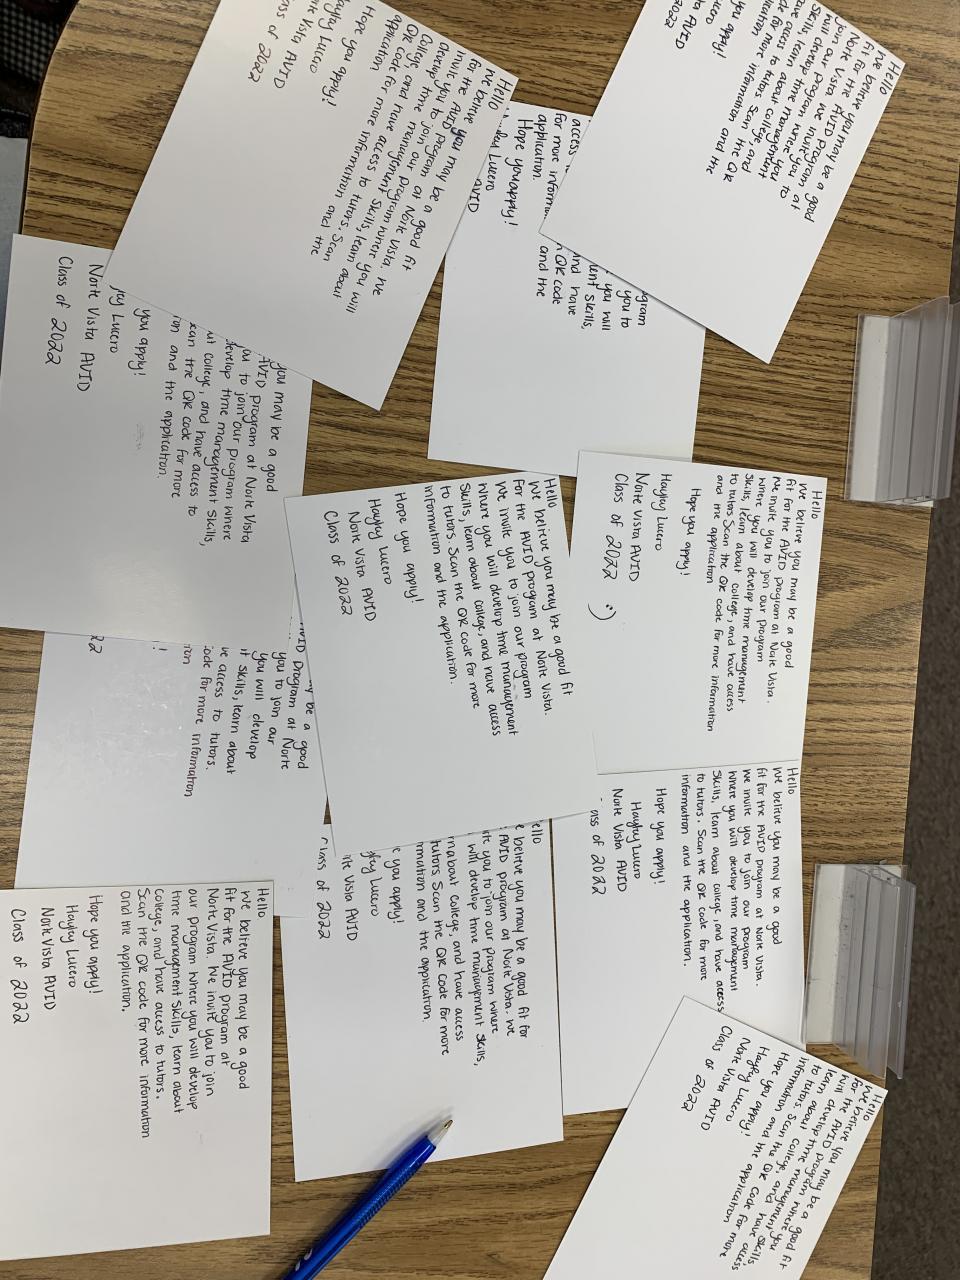 Hello
We believe you may be a good fit
for the AVID program at Norte Vista. We
invite you to join our program where you will
develop time management skills, learn about
College, and have access to tutors. Scan
QR code for more information and the
application.
Hope you apply!
Hayley Lucero
Norte Vista AVID
Class of 2022
access
for more
application.
Hope you apply!
Lucero
AVID
you to
you will
skills,
and have
QR code
and the
Hello
We believe you may be a good
fit for the AVID program at
Norte Vista. We invite you to
join our program where you
will develop time management
skills, learn about college, and
have access to tutors. Scan the QR
code for more information and the
you apply!
Lucero
2022
you may be a good
AVID program at Norte Vista
you to join our program where
develop time management skills,
college, and have access to
scan the QR code for more
and the application.
you apply!
Lucero
Norte Vista AVID
Class of 2022
Hello
We believe you may be a good fit
for the AVID program at Norte Vista.
We invite you to join our program
where you will develop time management
skills, learn about college, and have access
to tutors. Scan the QR code for more
information and the application.
Hope you apply!
Hayley Lucero
Norte Vista AVID
Class of 2022
Hello
We believe you may be a good
fit for the AVID program at Norte Vista.
We invite you to join our program
where you will develop time management
skills, learn about college, and have access
to tutors Scan the QR code for more information
and the application
Hope you apply!
Hayley Lucero
Norte Vista AVID
Class of 2022 :)
be a good
AVID program at Norte
you to join our
you will develop
skills, learn about
access to tutors.
code for more information
Hello
We believe you may be a good
fit for the AVID program at Norte Vista.
We invite you to join our program
where you will develop time management
skills, learn about college, and have access
to tutors. Scan the QR code for more
information and the application.
Hope you apply!
Hayley Lucero
Norte Vista AVID
Class of 2022
believe you may be a good fit for
AVID program at Norte Vista. We
you to join our program where
will develop time management skills,
about college, and have access
tutors Scan the QR code for more
and the application.
you apply!
Lucero
Vista AVID
Class of 2022
Hello
We believe you may be a good
fit for the AVID program at
Norte Vista. We invite you to join
our program where you will develop
time management skills, learn about
college, and have access to tutors.
Scan the QR code for more information
and the application.
Hope you apply!
Hayley Lucero
Norte Vista AVID
Class of 2022
Hello
We believe you may be a good fit
for the AVID program where you
will develop time management skills
learn about college, and have access
to tutors. Scan the QR code for more
information and the application
Hope you apply!
Hayley Lucero
Norte Vista AVID
Class of 2022